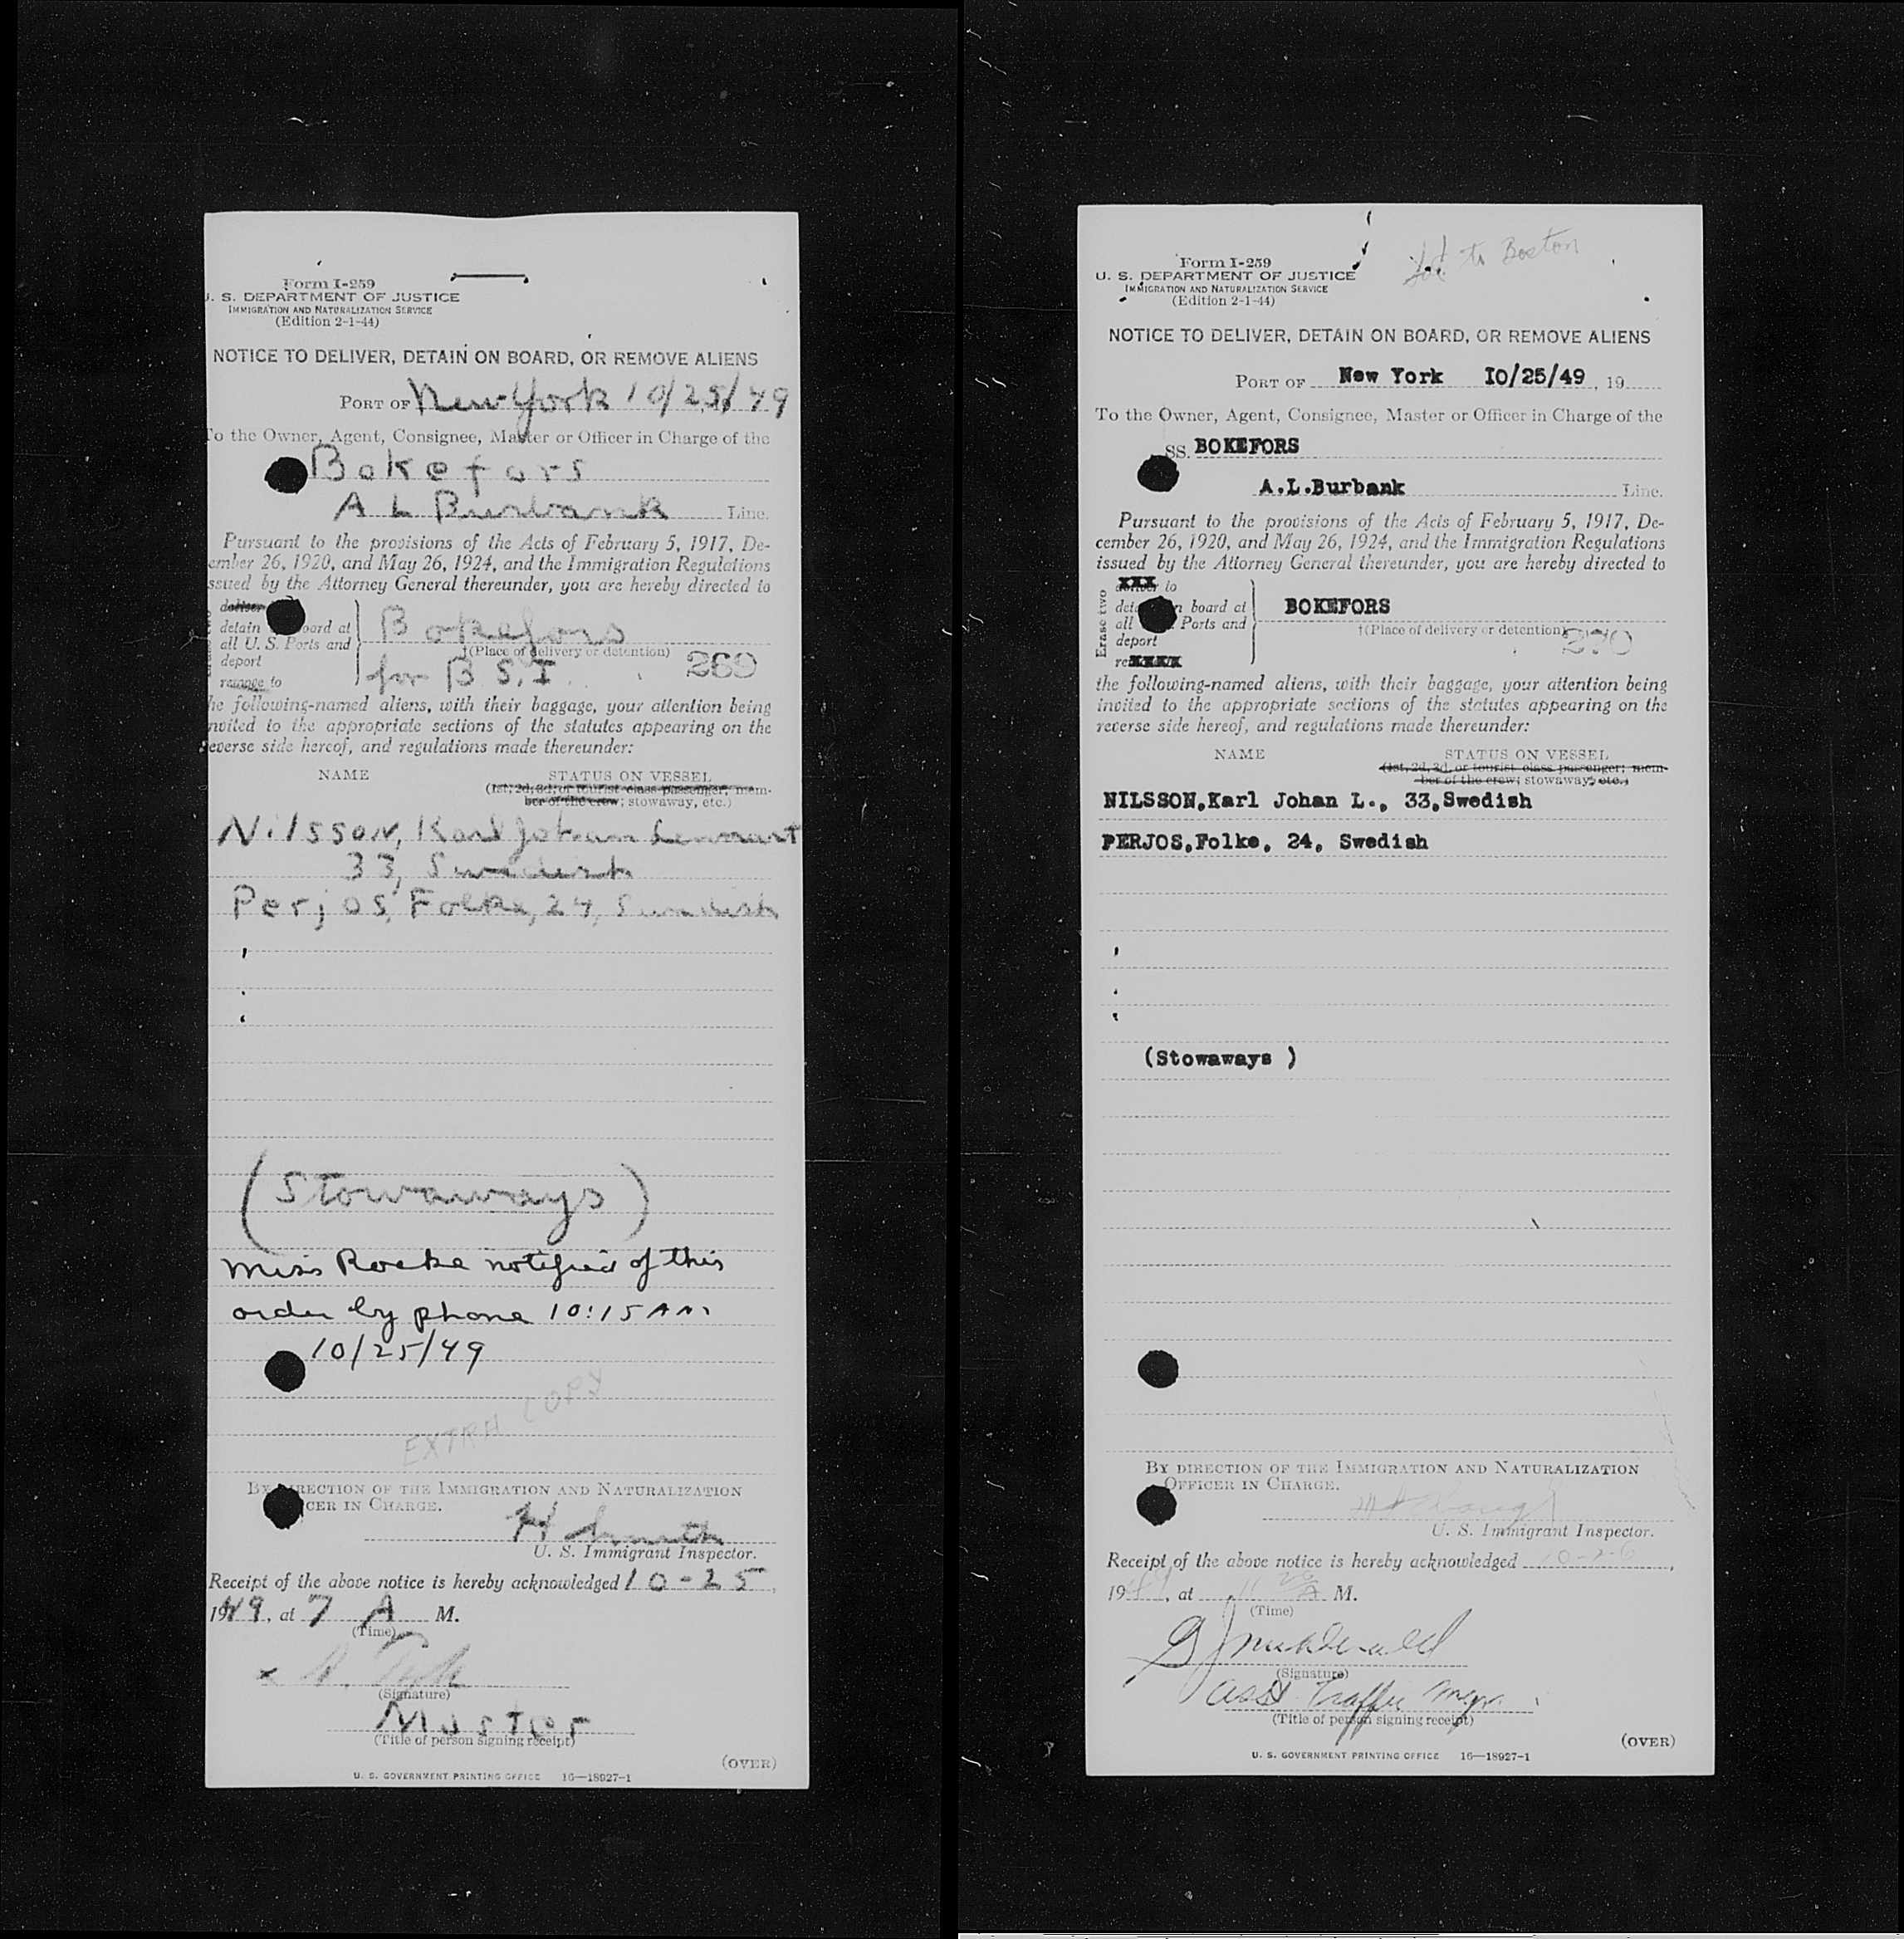 Form I-259
U. S. DEPARTMENT OF JUSTICE
IMMIGRATION AND NATURALIZATION SERVICE
(Edition 2-1-44)
NOTICE TO DELIVER, DETAIN ON BOARD, OR REMOVE ALIENS
PORT OF New York 10/25/49
To the Owner, Agent, Consignee, Master or Officer in Charge of the
Bokefors
A L Burbank Line.
Pursuant to the provisions of the Acts of February 5, 1917, De-
ember 26, 1920, and May 26, 1924, and the Immigration Regulations
ssued by the Attorney General thereunder, you are hereby directed to
deliver
detain board at
all U. S. Ports and
deport
remove to
Bokefors
†(Place of delivery or detention)
for B S. I. 269
he following-named aliens, with their baggage, your attention being
nvited to the appropriate sections of the statutes appearing on the
everse side hereof, and regulations made thereunder:
NAME STATUS ON VESSEL
(1st, 2d, 3d, or tourist class passenger; mem-
ber of the crew; stowaway, etc.)
Nilsson, Karl Johan Lennart
33, Swedish
Perjos, Folke, 24, Swedish
(Stowaways)
Miss Rocke notified of this
order by phone 10:15 AM
10/25/49
EXTRA COPY
BY DIRECTION OF THE IMMIGRATION AND NATURALIZATION
CER IN CHARGE.
H Smith
U. S. Immigrant Inspector.
Receipt of the above notice is hereby acknowledged 10-25,
1949, at 7 A M.
(Time)
x
(Signature)
Master
(Title of person signing receipt)
(OVER)
U. S. GOVERNMENT PRINTING OFFICE 16—18927-1
to Boston
Form I-259
U. S. DEPARTMENT OF JUSTICE
IMMIGRATION AND NATURALIZATION SERVICE
(Edition 2-1-44)
NOTICE TO DELIVER, DETAIN ON BOARD, OR REMOVE ALIENS
PORT OF New York IO/25/49, 19
To the Owner, Agent, Consignee, Master or Officer in Charge of the
SS. BOKEFORS
A.L.Burbank Line.
Pursuant to the provisions of the Acts of February 5, 1917, De-
cember 26, 1920, and May 26, 1924, and the Immigration Regulations
issued by the Attorney General thereunder, you are hereby directed to
Erase two
deliver to
deta n board at
all Ports and
deport
re
BOKEFORS
†(Place of delivery or detention)
270
the following-named aliens, with their baggage, your attention being
invited to the appropriate sections of the statutes appearing on the
reverse side hereof, and regulations made thereunder:
NAME STATUS ON VESSEL
(1st, 2d, 3d, or tourist class passenger; mem-
ber of the crew; stowaway, etc.)
NILSSON,Karl Johan L., 33,Swedish
PERJOS,Folke, 24, Swedish
(Stowaways )
BY DIRECTION OF THE IMMIGRATION AND NATURALIZATION
OFFICER IN CHARGE.
U. S. Immigrant Inspector.
Receipt of the above notice is hereby acknowledged 10-26,
1949, at 11 20 A M.
(Time)
(Signature)
Asst Traffic Mgr.
(Title of person signing receipt)
(OVER)
U. S. GOVERNMENT PRINTING OFFICE 16—18927-1